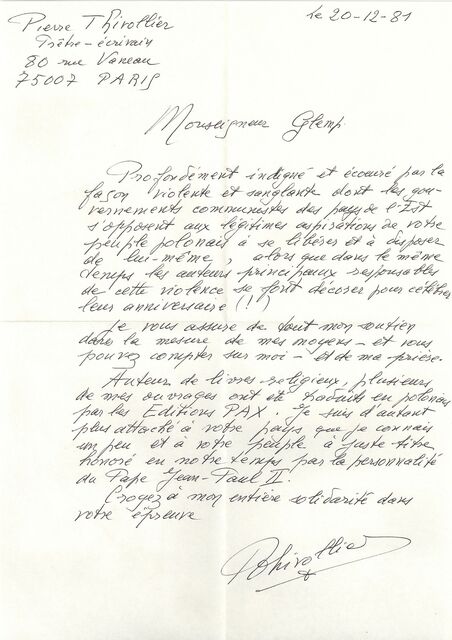 Pierre Thivollier
Prêtre-écrivain
80 rue Vaneau
75007 PARIS
le 20-12-81
Monseigneur Glemp
Profondément indigné et écœuré par la
façon violente et sanglante dont les gou-
vernements communistes des pays de l'Est
s'opposent aux légitimes aspirations de votre
peuple polonais à se libérer et à disposer
de lui-même, alors que dans le même
temps les auteurs principaux responsables
de cette violence se font décorer pour célébrer
leur anniversaire (!)
Je vous assure de tout mon soutien
dans la mesure de mes moyens - et vous
pouvez compter sur moi - et de ma prière.
Auteur de livres religieux, plusieurs
de mes ouvrages ont été traduits en polonais
par les Editions PAX. Je suis d'autant
plus attaché à votre pays que je connais
un peu et à votre peuple à juste titre
honoré en notre temps par la personnalité
du Pape Jean-Paul II.
Croyez à mon entière solidarité dans
votre épreuve
PThivollier